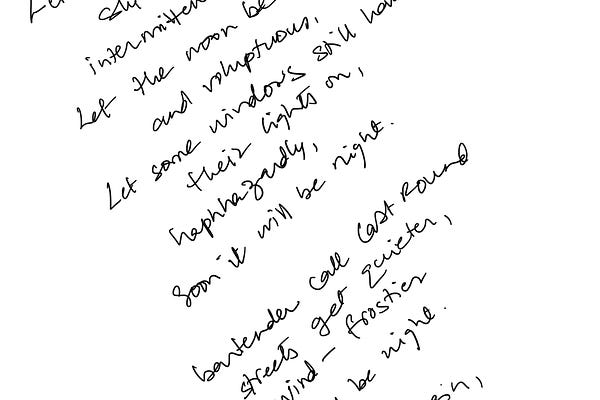 Let
intermitten
Let the moon be
and voluptuous,
Let some windows still hav
their lights on,
haphhazardly,
soon it will be night.
bartender call last round
streets get quieter,
wind - frostier
be night.